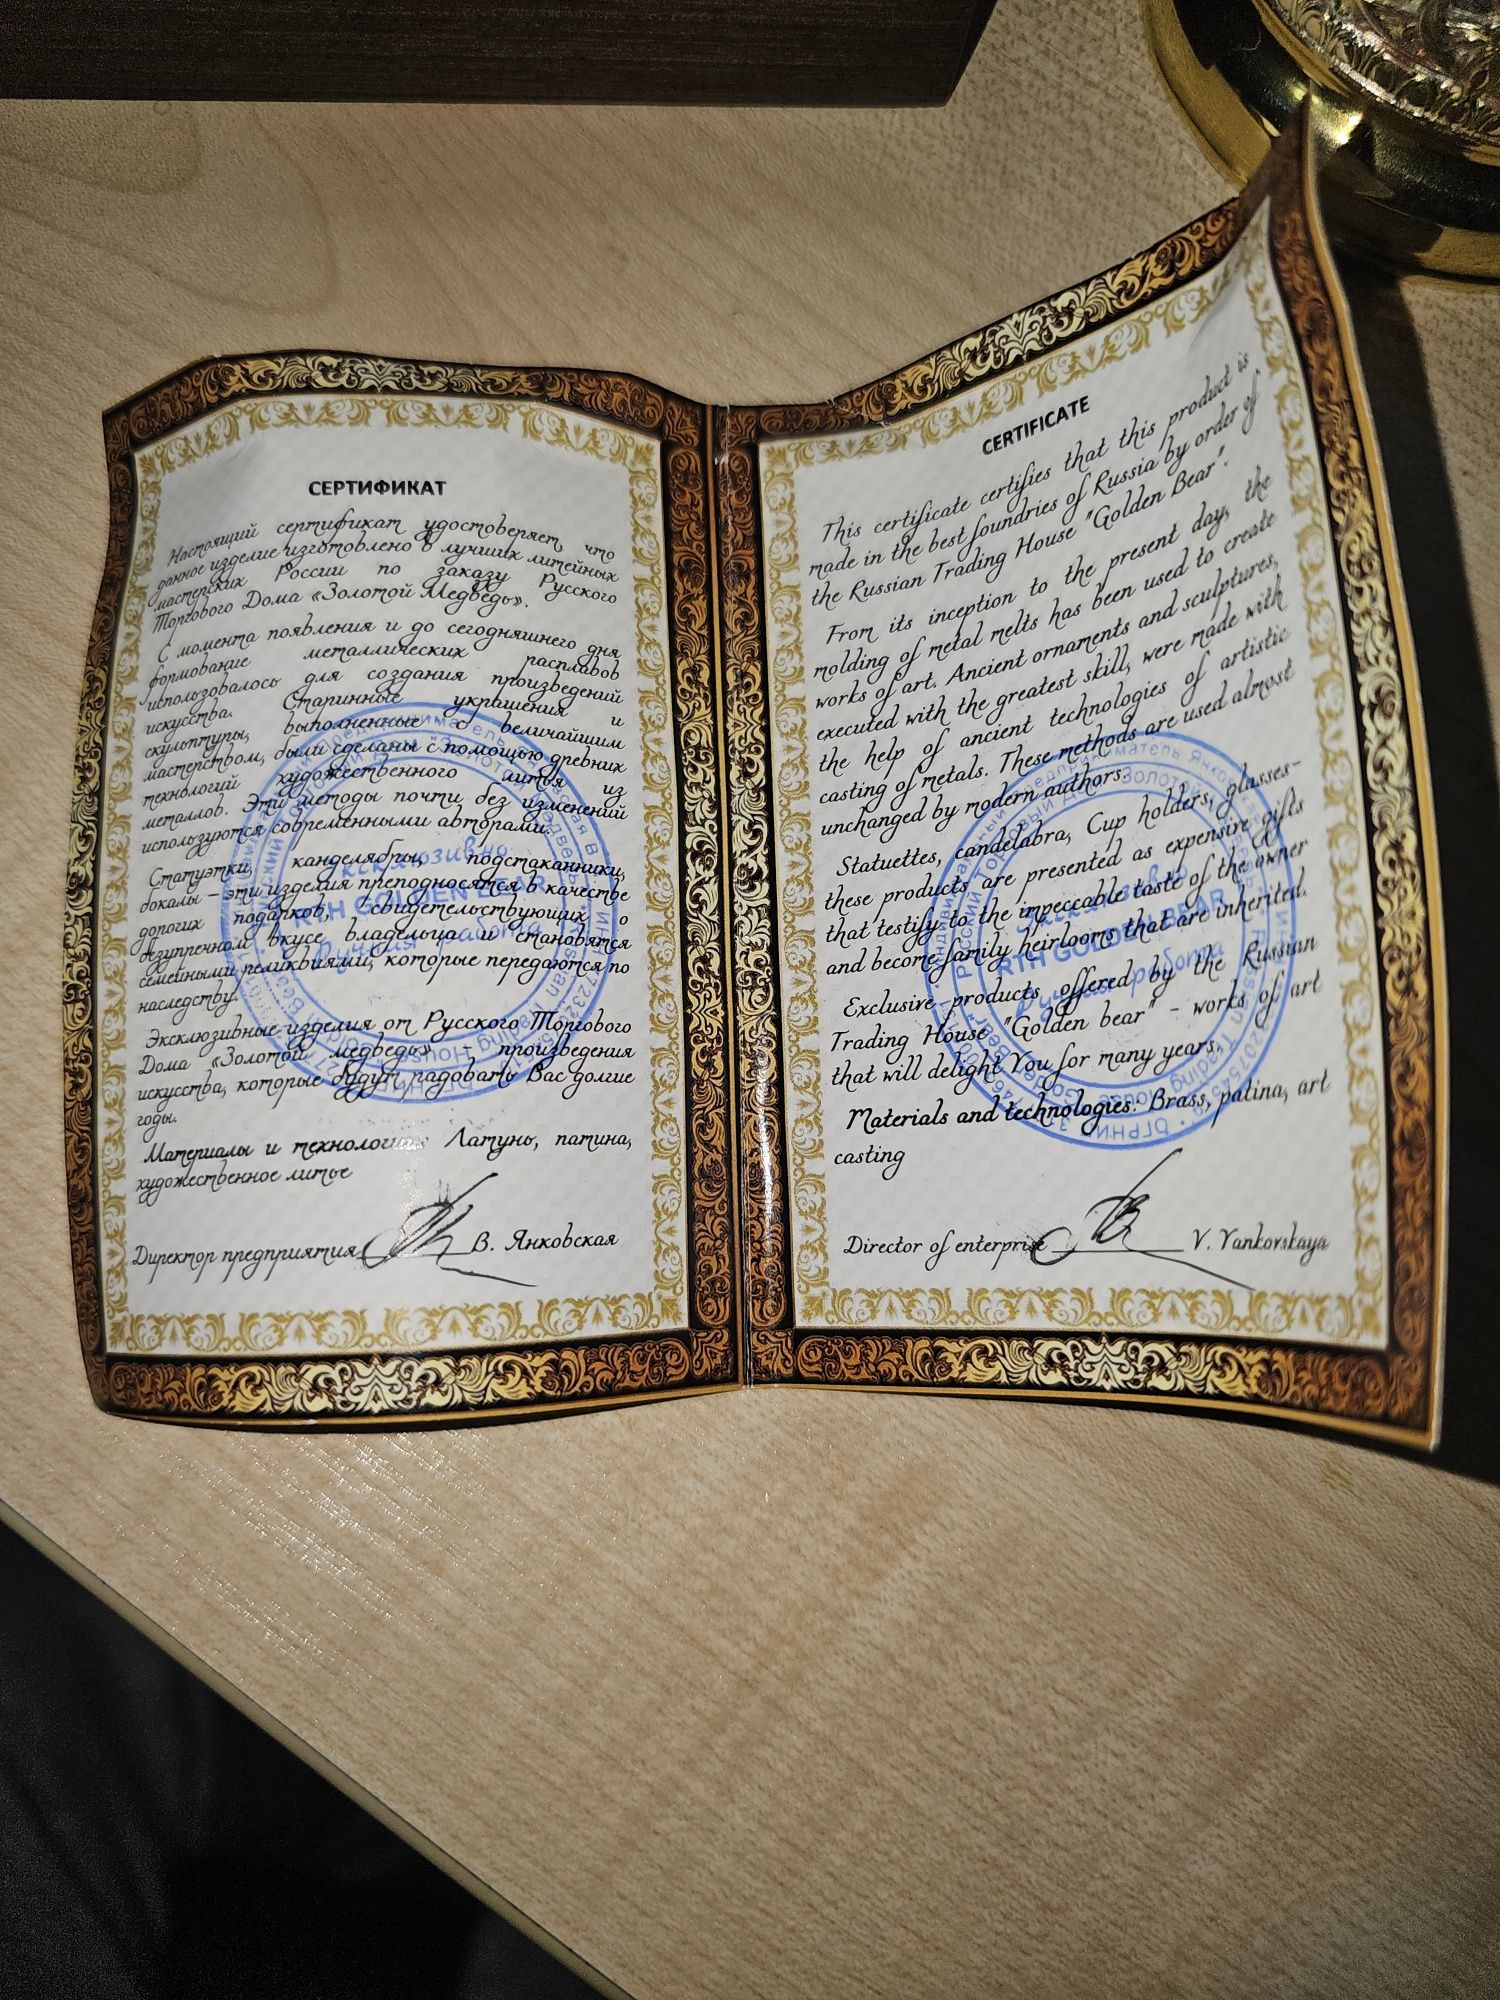 СЕРТИФИКАТ
Настоящий сертификат удостоверяет, что
данное изделие изготовлено в лучших литейных
мастерских России по заказу Русского
Торгового Дома «Золотой Медведь».
С момента появления и до сегодняшнего дня
формование металлических расплавов
использовалось для создания произведений
искусства. Старинные украшения и
скульптуры, выполненные с величайшим
мастерством, были сделаны с помощью древних
технологий художественного литья из
металлов. Эти методы почти без изменений
используются современными авторами.
Статуэтки, канделябры, подстаканники,
бокалы – эти изделия преподносятся в качестве
дорогих подарков, свидетельствующих о
безупречном вкусе владельца и становятся
семейными реликвиями, которые передаются по
наследству.
Эксклюзивные изделия от Русского Торгового
Дома «Золотой медведь» - произведения
искусства, которые будут радовать Вас долгие
годы.
Материалы и технологии: Латунь, патина,
художественное литье
Директор предприятия В. Янковская
Эксклюзивно
RTH GOLDEN BEAR
Ручная работа
CERTIFICATE
This certificate certifies that this product is
made in the best foundries of Russia by order of
the Russian Trading House "Golden Bear".
From its inception to the present day, the
molding of metal melts has been used to create
works of art. Ancient ornaments and sculptures,
executed with the greatest skill, were made with
the help of ancient technologies of artistic
casting of metals. These methods are used almost
unchanged by modern authors.
Statuettes, candelabra, Cup holders, glasses-
these products are presented as expensive gifts
that testify to the impeccable taste of the owner
and become family heirlooms that are inherited.
Exclusive products offered by the Russian
Trading House "Golden bear" - works of art
that will delight You for many years.
Materials and technologies: Brass, patina, art
casting
Director of enterprise V. Yankovskaya
Эксклюзивно
RTH GOLDEN BEAR
Ручная работа